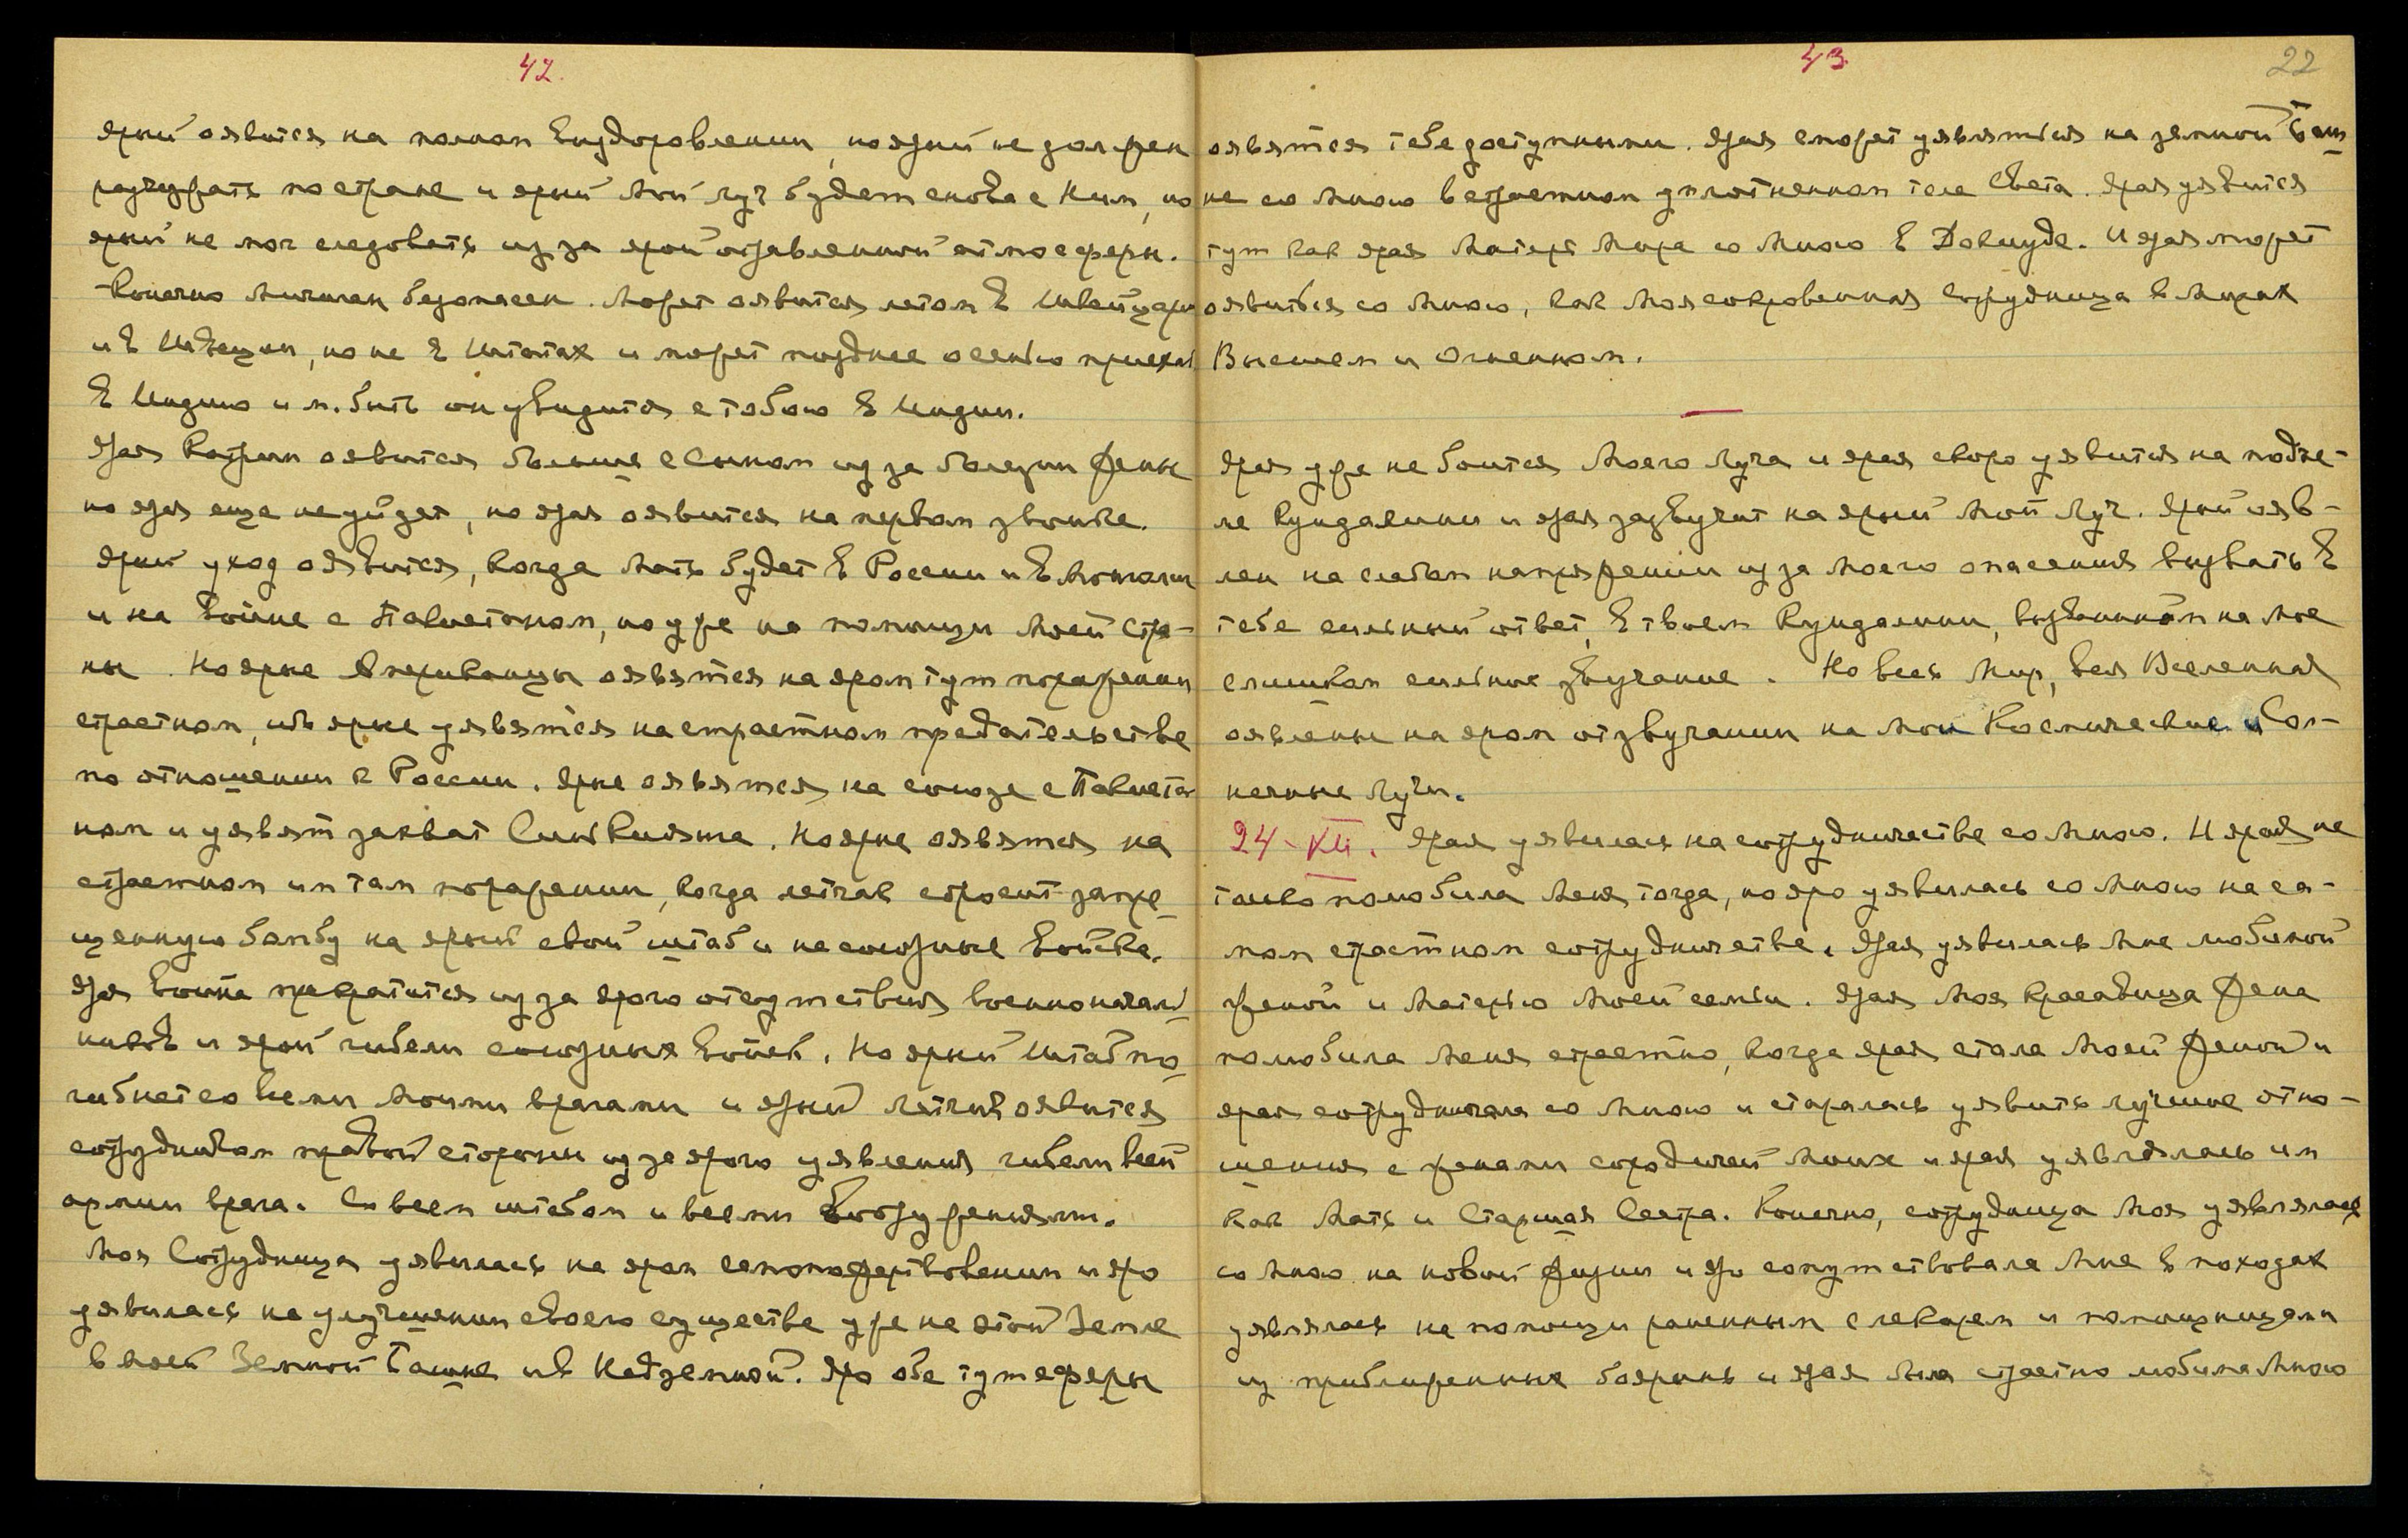 42.
ярый оявится на полном Выздоровлении, но ярый не должен
разъезжать по стране и ярый Мой луч будет снова с Ним, но
ярый не мог следовать из за ярой отравленной атмосферы.
Конечно Мичман безопасен. Может оявится летом в Швейцарии
и в Швеции, но не в Штатах и может позднее осенью приехать
в Индию и м. быть он увидится с тобою в Индии.
Ярая Катрин оявится больше с сыном из за болезни жены
но ярая еще не уйдет, но ярая оявится на первом звонке.
Ярый уход оявится, когда Мать будет в России и в Монголии
и на Войне с Пакистаном, но уже на помощи Моей Стра-
ны. Но ярые Американцы оявятся на яром тут поражении
страстном, ибо ярые уявятся на страстном предательстве
по отношении к России. Ярые оявятся на союзе с Пакиста-
ном и уявят захват Синкиянга. Но ярые оявятся на
страстном им там поражении, когда летчик сбросит запре-
щенную бомбу на ярый свой штаб и на союзные Войска.
Ярая Война прекратится из за ярого отсутствия военноначаль-
ников и ярой гибели союзных Войск. Но ярый Штаб по-
гибнет со всеми Моими врагами и ярый летчик оявится
сотрудником правой стороны из за ярого уявления гибели всей
армии врага. Со всем штабом и всеми Вооружениями.
Моя Сотрудница уявилась на яром самопожертвовании и яро
уявилась на улучшении своего существа уже на этой Земле
в Моей Земной Башне и в Надземной. Яро обе тут сферы
43.
22
оявятся тебе доступными. Ярая сможет уявляться на земной Баш-
не со Мною в страстном уплотненном теле Света. Ярая уявится
тут как ярая Матерь Мира со Мною в Докиуде. И ярая может
оявиться со Мною, как Моя сокровенная Сотрудница в Мирах
Высшем и Огненном.
Ярая уже не боится Моего Луча и ярая скоро уявится на подъе-
ме Кундалини и ярая зазвучит на ярый Мой Луч. Ярый ояв-
лен на слабом напряжении из за Моего опасения вызвать в
тебе сильный ответ, в твоем Кундалини, возникшем на Мое
слишком сильное звучание. Но весь Мир, вся Вселенная
оявлены на яром отзвучании на Мои Космические и Сол-
нечные Лучи.
24-XII. Ярая уявилась на сотрудничестве со Мною. И ярая не
только полюбила Меня тогда, но яро уявилась со Мною на са-
мом страстном сотрудничестве. Ярая уявилась Мне любимой
женой и Матерью Моей семьи. Ярая Моя Красавица Жена
полюбила Меня страстно, когда ярая стала Моей Женой и
ярая сотрудничала со Мною и старалась уявить лучшие отно-
шения с женами сородичей Моих и ярая уявлялась им
как Мать и Старшая Сестра. Конечно, сотрудница Моя уявлялась
со Мною на новой Жизни и яро сопутствовала Мне в походах
уявлялась на помощи раненным с лекарем и помощницами
из приближенных боярынь и ярая была страстно любима Мною